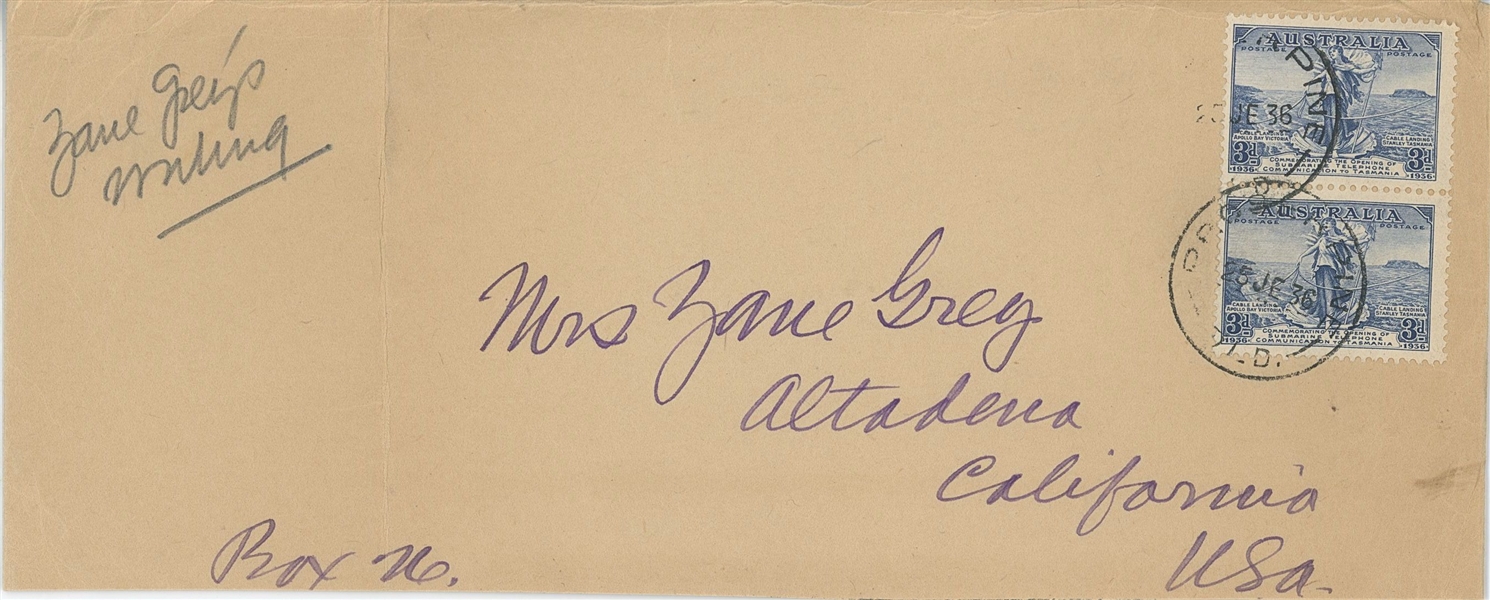 Zane Grey's
Writing
Mrs Zane Grey
Altadena
California
USA.
Box
AUSTRALIA
POSTAGE POSTAGE
CABLE LANDING
APOLLO BAY VICTORIA
CABLE LANDING
STANLEY TASMANIA
3d 3d
COMMEMORATING THE OPENING OF
SUBMARINE TELEPHONE
COMMUNICATION TO TASMANIA
1936 1936
PINE
JE 36
AUSTRALIA
POSTAGE POSTAGE
CABLE LANDING
APOLLO BAY VICTORIA
CABLE LANDING
STANLEY TASMANIA
3d 3d
COMMEMORATING THE OPENING OF
SUBMARINE TELEPHONE
COMMUNICATION TO TASMANIA
1936 1936
25 JE 36